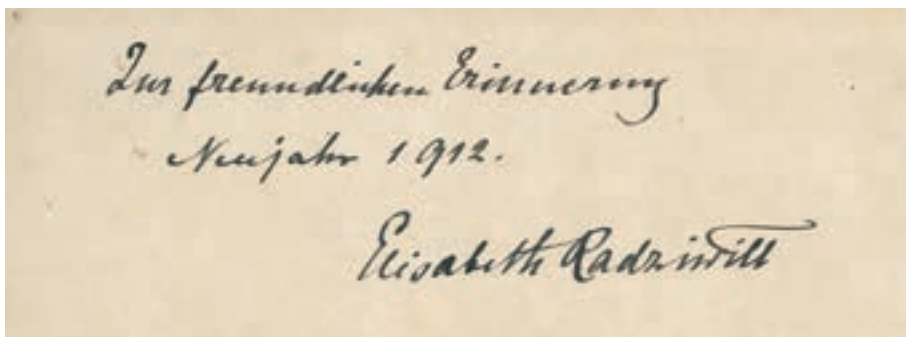 Zur freundlichen Erinnerung
Neujahr 1912.
Elisabeth Radziwill